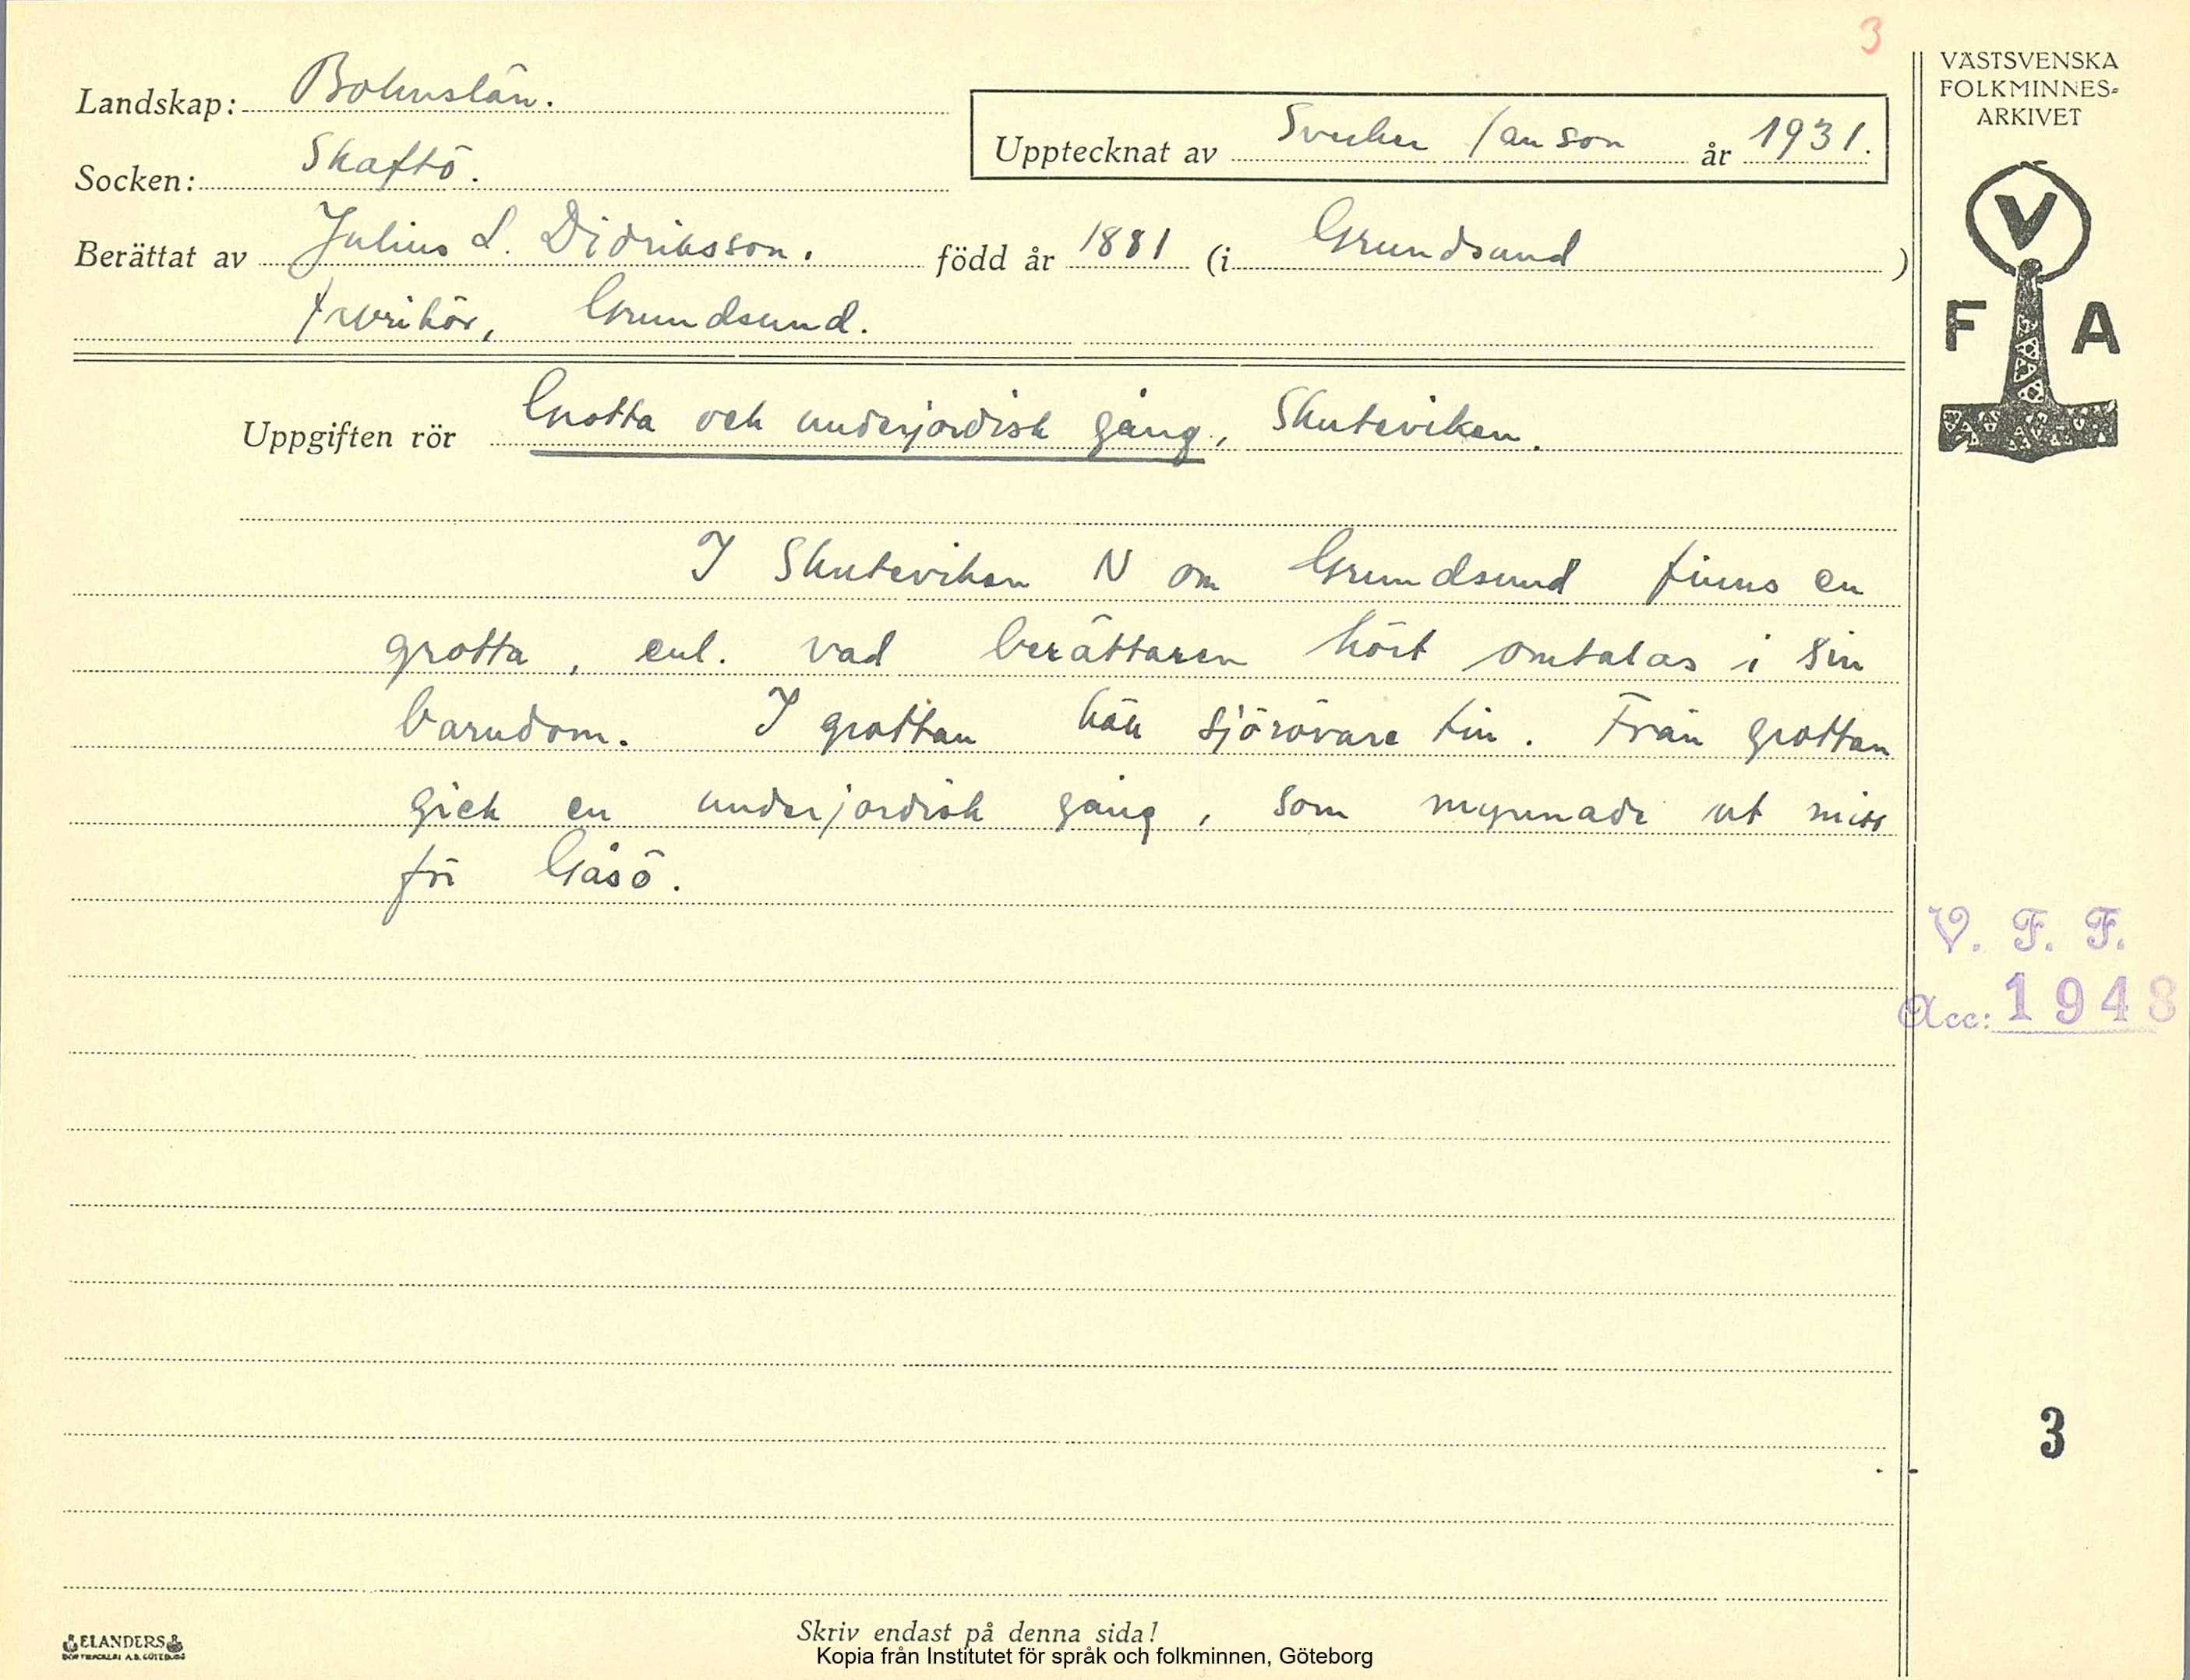 3
Landskap: Bohuslän.
VÄSTSVENSKA
FOLKMINNES-
ARKIVET
Upptecknat av Sverker Janson år 1931.
Socken: Skaftö.
Berättat av Julius L. Didriksson. född år 1881 (i Grundsund)
Grundsund.
V
F A
Uppgiften rör Grotta och underjordisk gång, Skuteviken.
I Skuteviken N om Grundsund finns en
grotta, enl. vad berättaren hört omtalas i sin
barndom. I grottan höll sjörövare till. Från grottan
gick en underjordisk gång, som mynnade ut mitt
för Gåsö.
V. F. F.
Acc: 1948
3
Skriv endast på denna sida!
ELANDERS
BOKTRYCKERI A.B. GÖTEBORG
Kopia från Institutet för språk och folkminnen, Göteborg